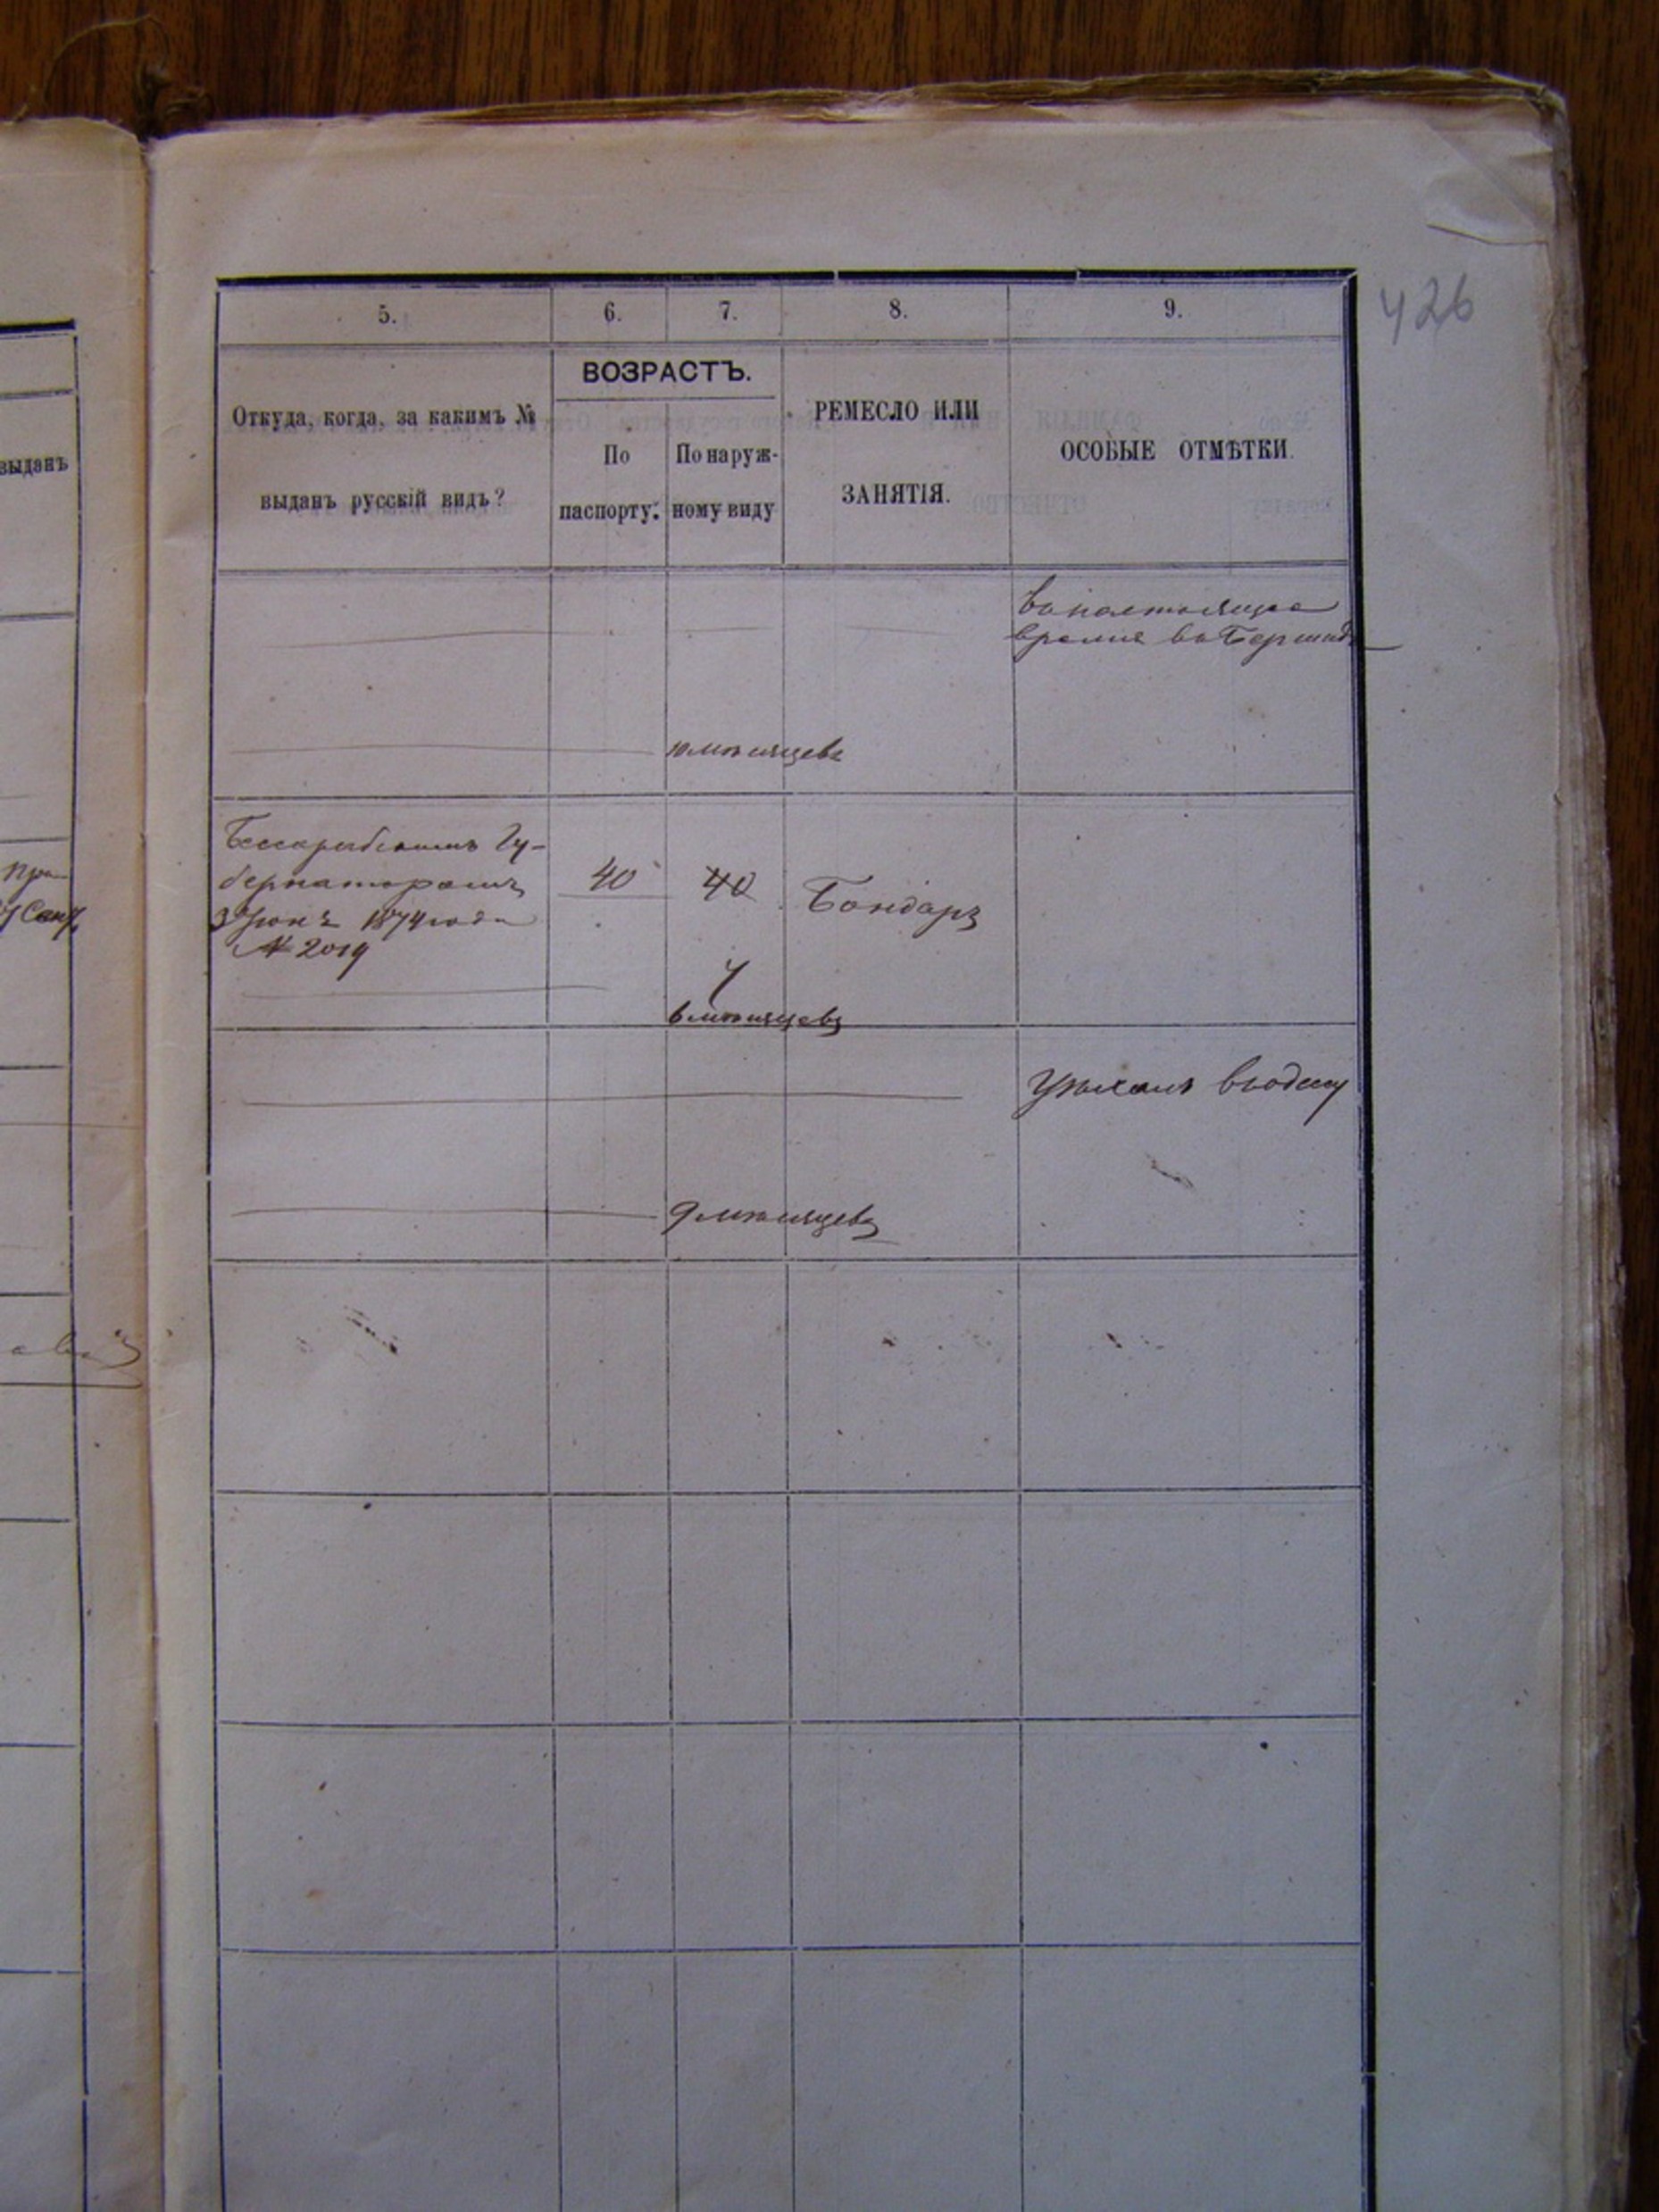 426
5. 6. 7. 8. 9.
Откуда, когда, за какимъ №
выданъ русскій видъ?
ВОЗРАСТЪ.
По
паспорту.
По наруж-
ному виду
РЕМЕСЛО ИЛИ
ЗАНЯТІЯ.
ОСОБЫЕ ОТМѢТКИ.
выданъ
въ настоящее
время въ Бершад
10 мѣсяцевъ
Бессарабскимъ Гу-
бернаторомъ
3 Іюня 1874 года
№ 2019
40
40
Бондарь
4
6 мѣсяцевъ
Уѣхалъ въ Одессу
9 мѣсяцевъ